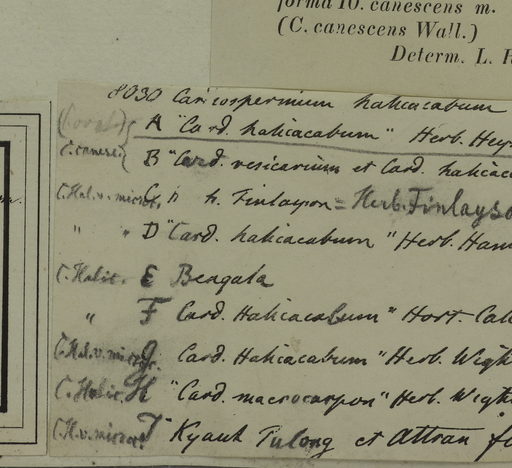 forma 10. canescens m.
(C. canescens Wall.)
Determ. L. R
8030 Cariospermum halicacabum
A "Card. halicacabum" Herb. Hey
C. canesc. B "Card. vesicarium et Card. halicac
C. Hal. v. microc. C h. Finlayson = Herb. Finlayso
" " D "Card. halicacabum" Herb. Ham
C. Halic. E Bengala
" F Card. Halicacabum" Hort. Cal
C. Hal. v. microc. G Card. Halicacabum "Herb. Wigh
C. Halic. H "Card. macrocarpon" Herb. Wight
C. H. v. microc. I Kyauk Tulong et Attran